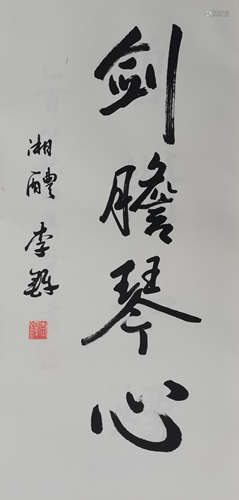 剑胆琴心
湘醴 李铎